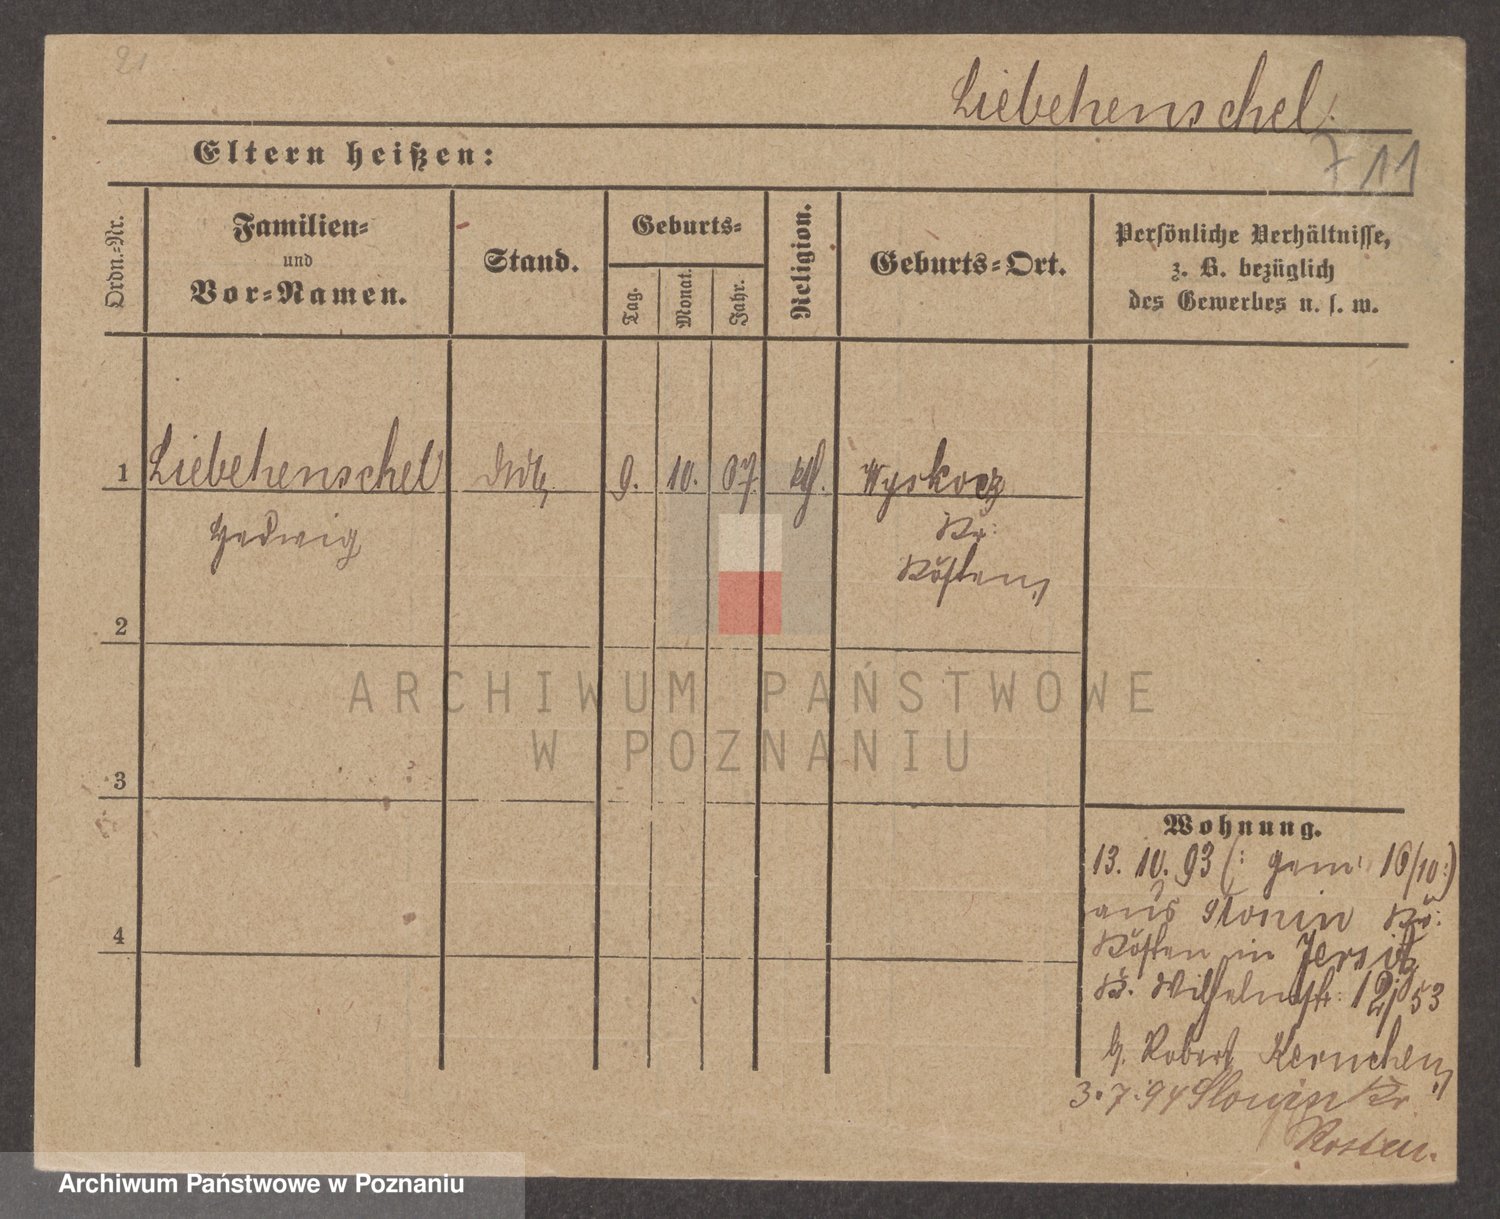 21
Liebehenschel.
711
Eltern heißen:
Ordn.-Nr.
Familien-
und
Vor-Namen.
Stand.
Geburts-
Tag.
Monat.
Jahr.
Religion.
Geburts-Ort.
Persönliche Verhältnisse,
z. B. bezüglich
des Gewerbes u. s. w.
1 Liebehenschel 9. 10. 07 Wyskocz
Hedwig
Kr:
Kosten
2
ARCHIWUM PAŃSTWOWE
W POZNANIU
3
Wohnung.
13. 10. 93 (: gem: 16/10 :)
aus Slonin Kr:
4
Kosten in Jersitz
Wilhelmstr: 53
b. Robert Kernchen
3.7.94 Slonin Kr
Kosten.
Archiwum Państwowe w Poznaniu